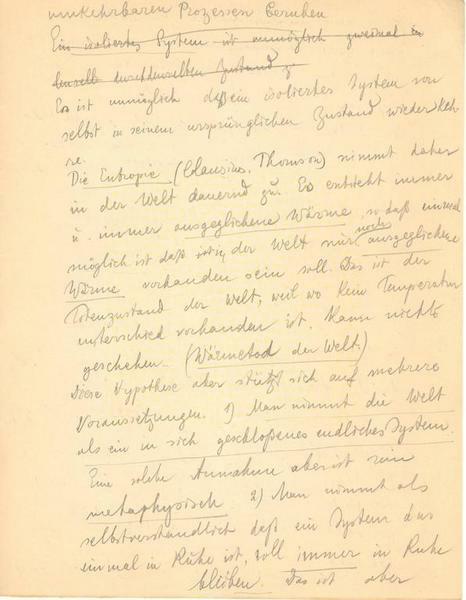 umkehrbaren Prozessen beruhen
Ein isoliertes System ist unmöglich zweimal in
denselben Zustand z
Es ist unmöglich daß ein isoliertes System von
selbst in seinem ursprünglichen Zustand wiederkeh-
re.
Die Entropie (Clausius, Thomson) nimmt daher
in der Welt dauernd zu. Es entsteht immer
u. immer ausgeglichene Wärme, so daß einmal
möglich ist daß in der Welt nur noch ausgeglichene
Wärme vorhanden sein soll. Das ist der
Totenzustand der Welt, weil wo kein Temperatur
unterschied vorhanden ist. Kann nichts
geschehen. (Wärmetod der Welt.)
Diese Hypothese aber stützt sich auf mehrere
Voraussetzungen. 1) Man nimmt die Welt
als ein in sich geschloßenes endliches System.
Eine solche Annahme aber ist rein
metaphysisch 2) Man nimmt als
selbstverständlich daß ein System das
einmal in Ruhe ist, soll immer in Ruhe
bleiben. Das ist aber